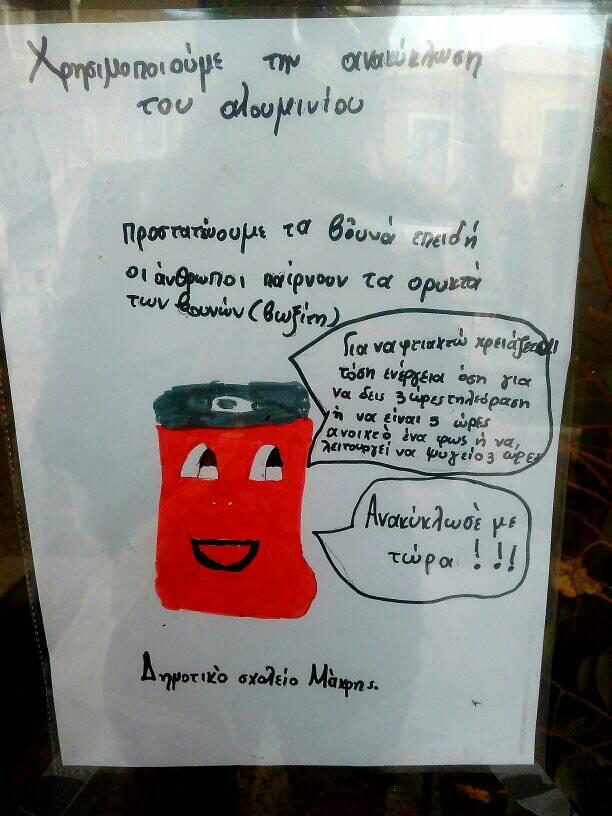 Χρησιμοποιούμε την ανακύκλωση
του αλουμινίου
Προστατέυουμε τα βουνά επειδή
οι άνθρωποι παίρνουν τα ορυκτά
των βουνών (βωξίτη)
Για να φτιαχτώ χρειάζεται
τόση ενέργεια όση για
να δεις 3 ώρες τηλεόραση
ή να είναι 5 ώρες
ανοιχτό ένα φως ή να,
λειτουργεί να ψυγείο 3 ώρες
Ανακύκλωσέ με
τώρα !!!
Δημοτικό σχολείο Μάκρης.